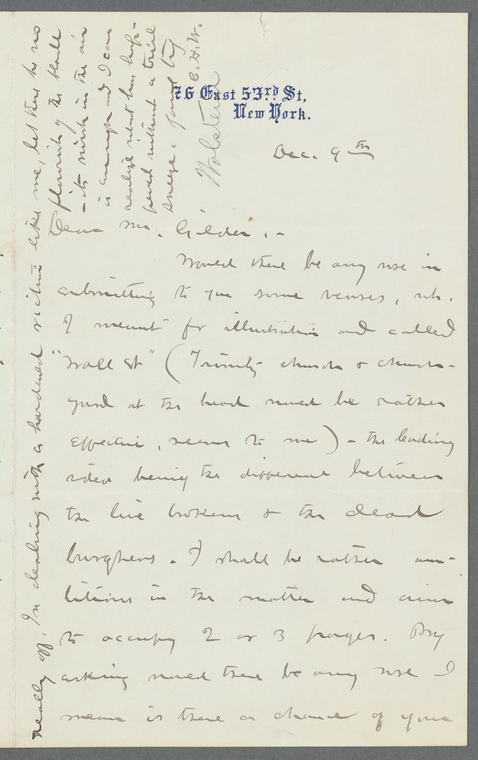 76 East 53rd St,
New York.
Dec. 9th
Dear Mr. Gilder,-
Would there be any use in
submitting to you some verses, wh.
I meant for illustration and called
"Wall St" (Trinity church & church-
yard at the head would be rather
effective, seems to me) - the leading
idea being the difference between
the live brokers & the dead
burghers. I shall be rather am-
bitious in the matter and aim
to occupy 2 or 3 pages. By
asking would there be any use I
mean is there a chance of your
really off. In dealing with a hardened victim like me, let there be no
flourish of the blade
- its swish in the air
is enough and I can
realize what has hap-
pened without a trial
sneeze.
E. S. W.